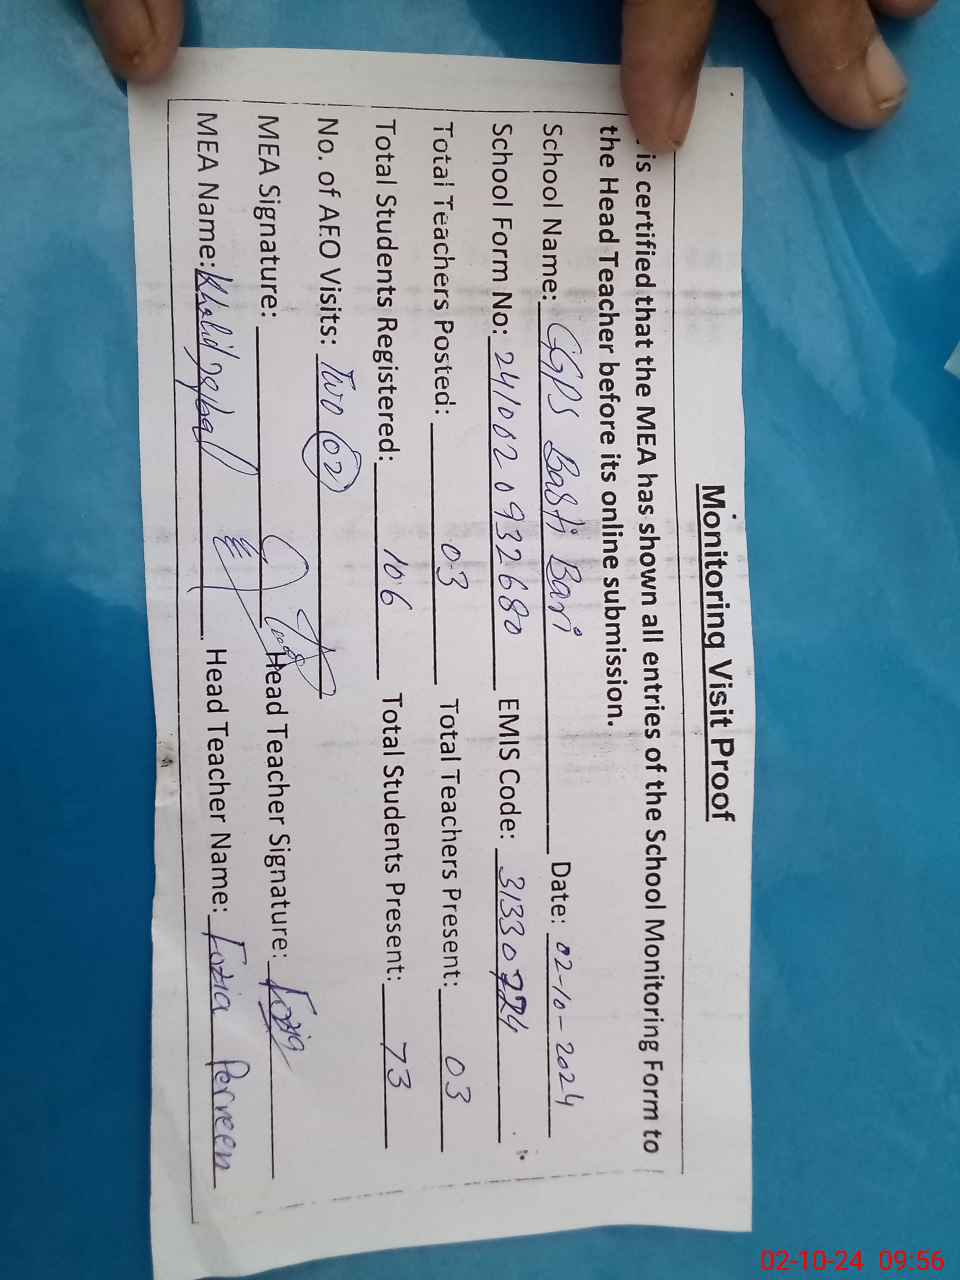 Monitoring Visit Proof
is certified that the MEA has shown all entries of the School Monitoring Form to
the Head Teacher before its online submission.
School Name: GGPS Basti Bari Date: 02-10-2024
School Form No: 241002 0932680 EMIS Code: 31330224
Total Teachers Posted: 03 Total Teachers Present: 03
Total Students Registered: 106 Total Students Present: 73
No. of AEO Visits: Two 02
MEA Signature: Head Teacher Signature: Fozia
MEA Name: Khalid Iqbal Head Teacher Name: Fozia Perveen
02-10-24 09:56